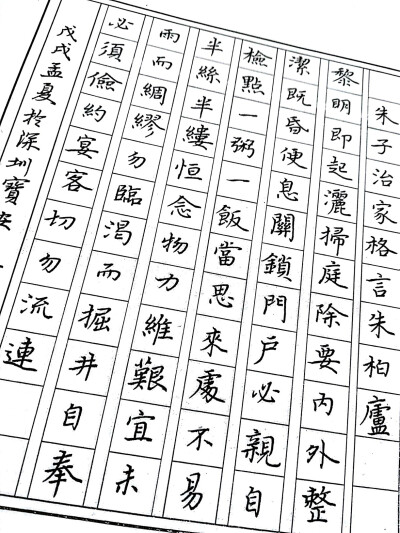 朱子治家格言朱柏廬
黎明即起灑掃庭除要內外整
潔既昏便息關鎖門戶必親自
檢點一粥一飯當思來處不易
半絲半縷恒念物力維艱宜未
雨而綢繆勿臨渴而掘井自奉
必須儉約宴客切勿流連
戊戌孟夏於深圳寶安